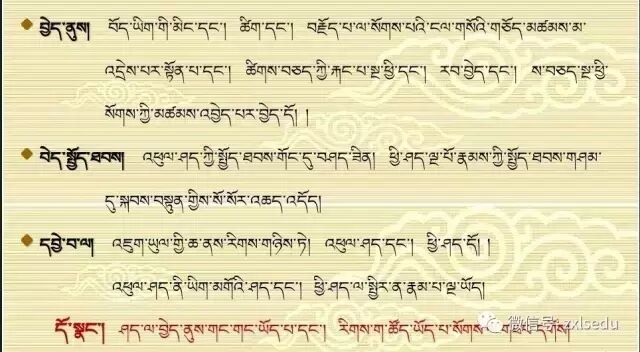 བྱེད་ནུས། བོད་ཡིག་གི་མིང་དང་། ཚིག་དང་། བརྗོད་པ་ལ་སོགས་པའི་ངལ་གསོའི་གཅོད་མཚམས་མ་
འདྲེས་པར་སྟོན་པ་དང་། ཚིགས་བཅད་ཀྱི་རྐང་པ་སྔ་ཕྱི་དང་། རབ་བྱེད་དང་། ས་བཅད་སྔ་ཕྱི་
སོགས་ཀྱི་མཚམས་འབྱེད་པར་བྱེད་དོ། །
བེད་སྤྱོད་ཐབས། འཕུལ་ཤད་ཀྱི་སྤྱོད་ཐབས་གོང་དུ་བཤད་ཟིན། ཕྱི་ཤད་ལྔ་པོ་རྣམས་ཀྱི་སྤྱོད་ཐབས་གཤམ་
དུ་སྐབས་བསྟུན་གྱིས་སོ་སོར་འཆད་འདོད།
དབྱེ་བ་ལ། འཇུག་ཡུལ་གྱི་ཆ་ནས་རིགས་གཉིས་ཏེ། འཕུལ་ཤད་དང་། ཕྱི་ཤད་དོ། །
འཕུལ་ཤད་ནི་ཡིག་མགོའི་ཤད་དང་། ཕྱི་ཤད་ལ་སྤྱིར་ན་རྣམ་པ་ལྔ་ཡོད།
དོ་སྣང་། ཤད་ལ་བྱེད་ནུས་གང་གང་ཡོད་པ་དང་། རིགས་ག་ཚོད་ཡོད་པ་སོགས་
微信号: zxlsedu